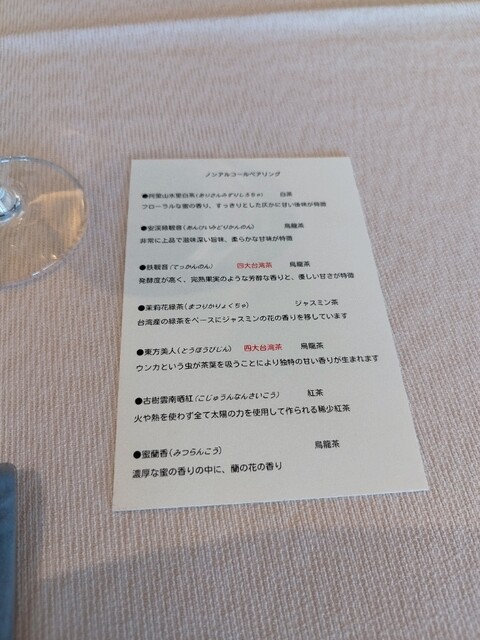 ノンアルコールペアリング
●阿里山水里白茶 白茶
フローラルな蜜の香り、すっきりとした仄かに甘い後味が特徴
●安渓緑観音(あんけいみどりかんのん) 烏龍茶
非常に上品で滋味深い旨味、柔らかな甘味が特徴
●鉄観音(てっかんのん) 四大台湾茶 烏龍茶
発酵度が高く、完熟果実のような芳醇な香りと、優しい甘さが特徴
●茉莉花緑茶(まつりかりょくちゃ) ジャスミン茶
台湾産の緑茶をベースにジャスミンの花の香りを移しています
●東方美人(とうほうびじん) 四大台湾茶 烏龍茶
ウンカという虫が茶葉を吸うことにより独特の甘い香りが生まれます
●古樹雲南晒紅(こじゅうんなんさいこう) 紅茶
火や熱を使わず全て太陽の力を使用して作られる稀少紅茶
●蜜蘭香(みつらんこう) 烏龍茶
濃厚な蜜の香りの中に、蘭の花の香り